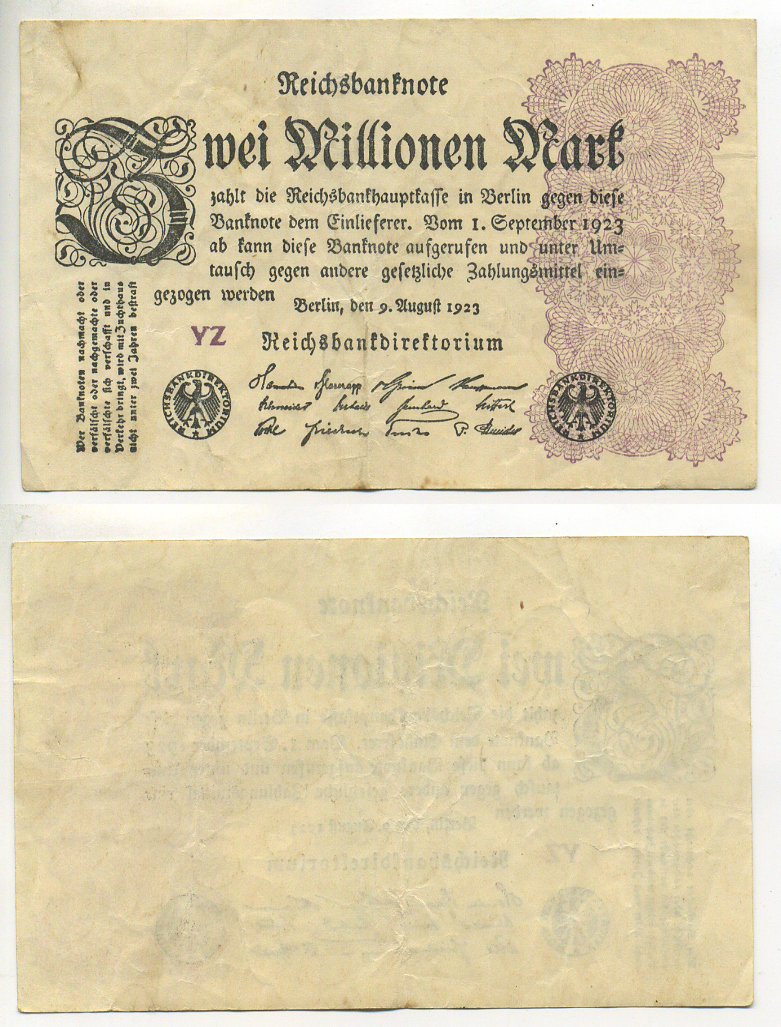 Reichsbanknote
Zwei Millionen Mark
zahlt die Reichsbankhauptkasse in Berlin gegen diese
Banknote dem Einlieferer. Vom 1. September 1923
ab kann diese Banknote aufgerufen und unter Um=
tausch gegen andere gesetzliche Zahlungsmittel ein=
gezogen werden
Berlin, den 9. August 1923
YZ
Reichsbankdirektorium
Wer Banknoten nachmacht oder
verfälscht oder nachgemachte oder
verfälschte sich verschafft und in
Verkehr bringt, wird mit Zuchthaus
nicht unter zwei Jahren bestraft
REICHSBANKDIREKTORIUM
REICHSBANKDIREKTORIUM